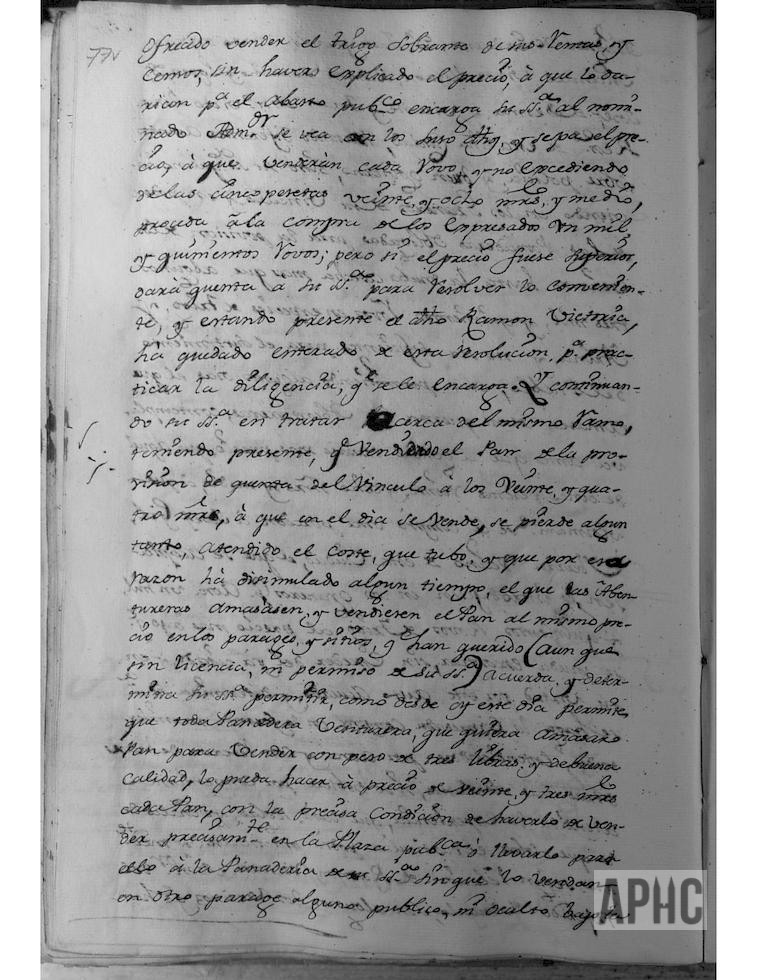 77v
ofreado vender el trigo sobrante de sus Rentas, y
Censos, sin havers explicado el precio, à que lo da-
rian p.ª el abasto pub.co encarga su SS.ª al nomi-
nado Adm.or se vea con los suso dhos, y sepa el pre-
cio, à que venderàn cada Rovo, y no excediendo
de las cinco pesetas veinte, y ocho mrs, y medio,
proceda à la compra de los expresados un mil,
y quinientos Rovos; pero si el precio fuese superior,
darà quenta a su SS.ª para resolver lo convenien-
te, y estando presente el dho Ramon Victoria,
hà quedado enterado de esta resolucion, p.ª prac-
ticar la diligencia, q.e se le encarga. Y continuan-
do su SS.ª en tratar acerca del mismo Ramo,
teniendo presente, q.e vendiendo el Pan de la pro-
vision de quenta del Vinculo à los veinte, y qua-
tro mrs, à que en el dia se vende, se pierde algun
tanto, atendido el coste, que tubo, y que por esta
razon hà disimulado algun tiempo, el que las Aben-
tureras amasàsen, y vendiesen el Pan al mismo pre-
cio en los parages, y sitios, q.e han querido (aun que
sin licencia, ni permiso de su SS.ª) acuerda, y deter-
mina su SS.ª permitir, como desde oy este dia permite,
que toda Panadera Venturera, que quiera amasar
Pan para vender con peso de tres libras, y de buena
calidad, lo pueda hacer à precio de veinte, y tres mrs
cada Pan, con la precisa condicion de haverlo de ven-
der precisam.te en la Plaza pub.ca ò llevarlo para
ello à la Panaderia de su SS.ª sin que lo vendan
en otro parage alguno publico, ni oculto bajo la
APHC